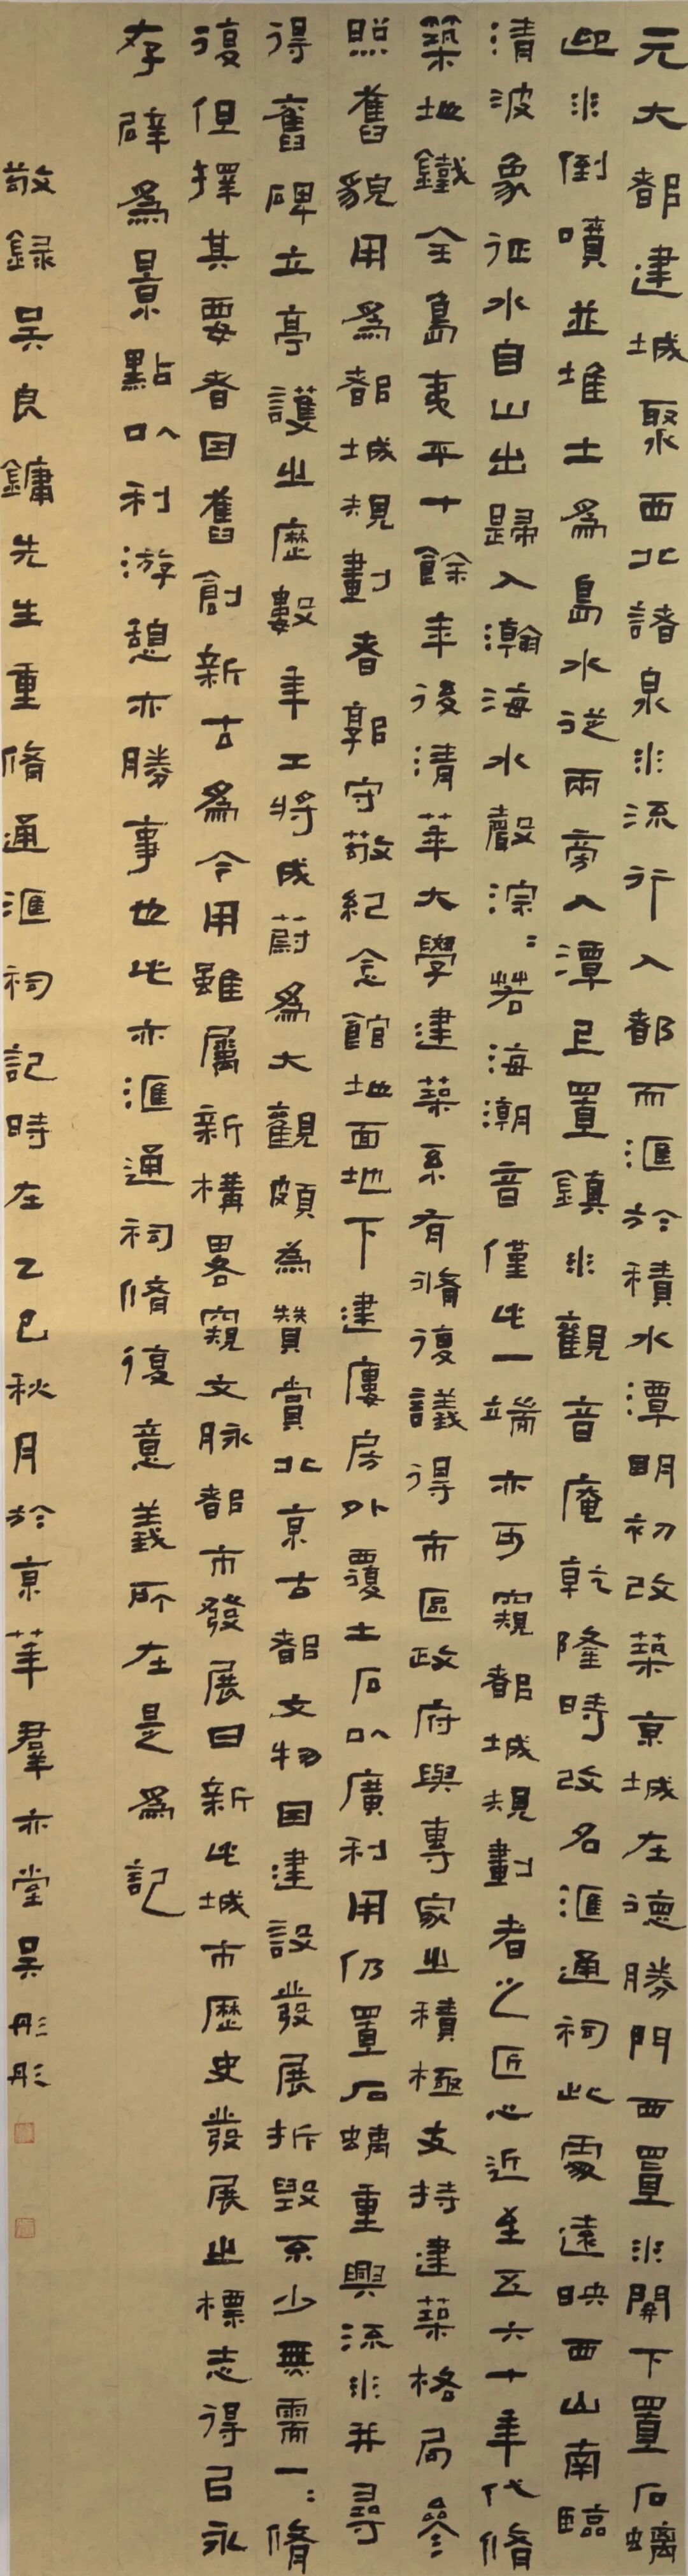 元大都建城聚西北諸泉水流行入都而滙於積水潭明初改築京城在德勝門西置水關下置石螭
迎水倒噴並堆土為島水從兩旁入潭且置鎮水觀音庵乾隆時改名滙通祠此處遠映西山南臨
清波象征水自山出歸入瀚海水聲淙:若海潮音僅此一端亦可窺都城規劃者之匠心近至五六十年代修
築地鐵全島夷平十餘年後清華大學建築系有脩復議得市區政府與專家之積極支持建築格局參
照舊貌用為都城規劃者郭守敬紀念館地面地下建廔房外覆土石以廣利用仍置石螭重興流水并尋
得舊碑立亭護之歷數年工將成蔚為大觀頗為贊賞北京古都文物因建設發展拆毀不少無需一:脩
復但擇其要者因舊創新古為今用雖屬新構畧窺文脉都市發展日新此城市歷史發展之標志得以永
存辟為景點以利游憩亦勝事也此亦滙通祠脩復意義所在是為記
敬録吴良鏞先生重脩通滙祠記時在乙巳秋月於京華羣亦堂吴彤彤